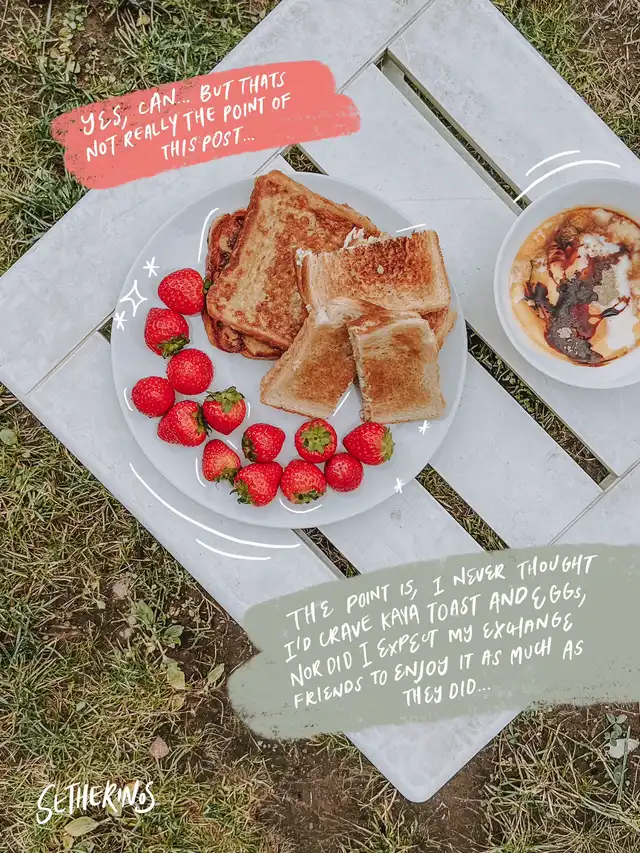 YES, CAN... BUT THATS
NOT REALLY THE POINT OF
THIS POST...
THE POINT IS, I NEVER THOUGHT
I'D CRAVE KAYA TOAST AND EGGS,
NOR DID I EXPECT MY EXCHANGE
FRIENDS TO ENJOY IT AS MUCH AS
THEY DID...
SETHERINOS